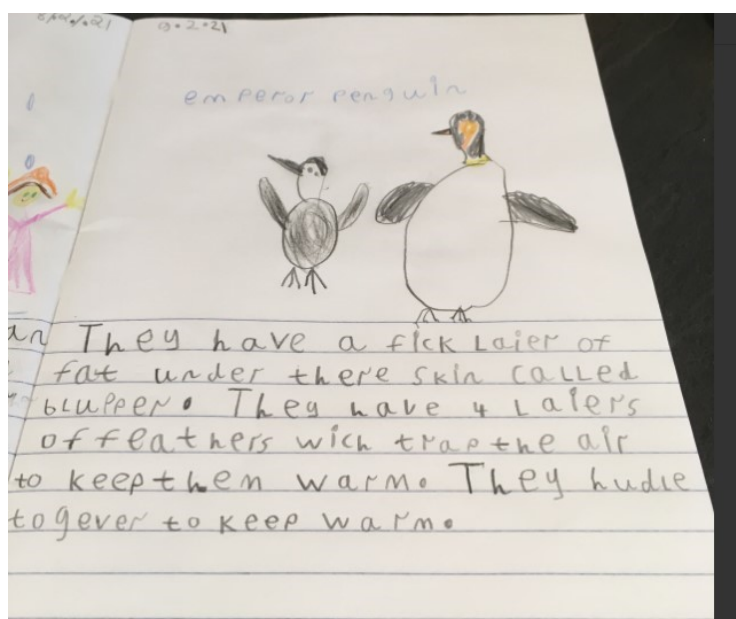 9.2.21
emperor penguin
They have a fick Laier of
fat under there skin caLLed
bLupper. They have 4 Laiers
of feathers wich trap the air
to keep them warm. They hudle
togever to keep warm.